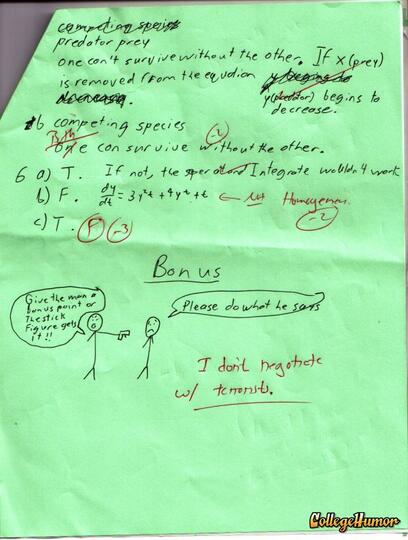 competing species
predator prey
one can't survive without the other. If x (prey)
is removed from the equation
y (predator) begins to
decrease.
1b competing species
-2
Both
One can survive without the other.
6 a) T. If not, the Integrate wouldn't work
b) F. dy/dt = 3y²t + 4yt + t ← not Homogeneous
-2
c) T. F -3
Bonus
Give the man a
bonus point or
The stick
Figure gets
it!!
Please do what he says
I don't negotiate
w/ terrorists.
CollegeHumor